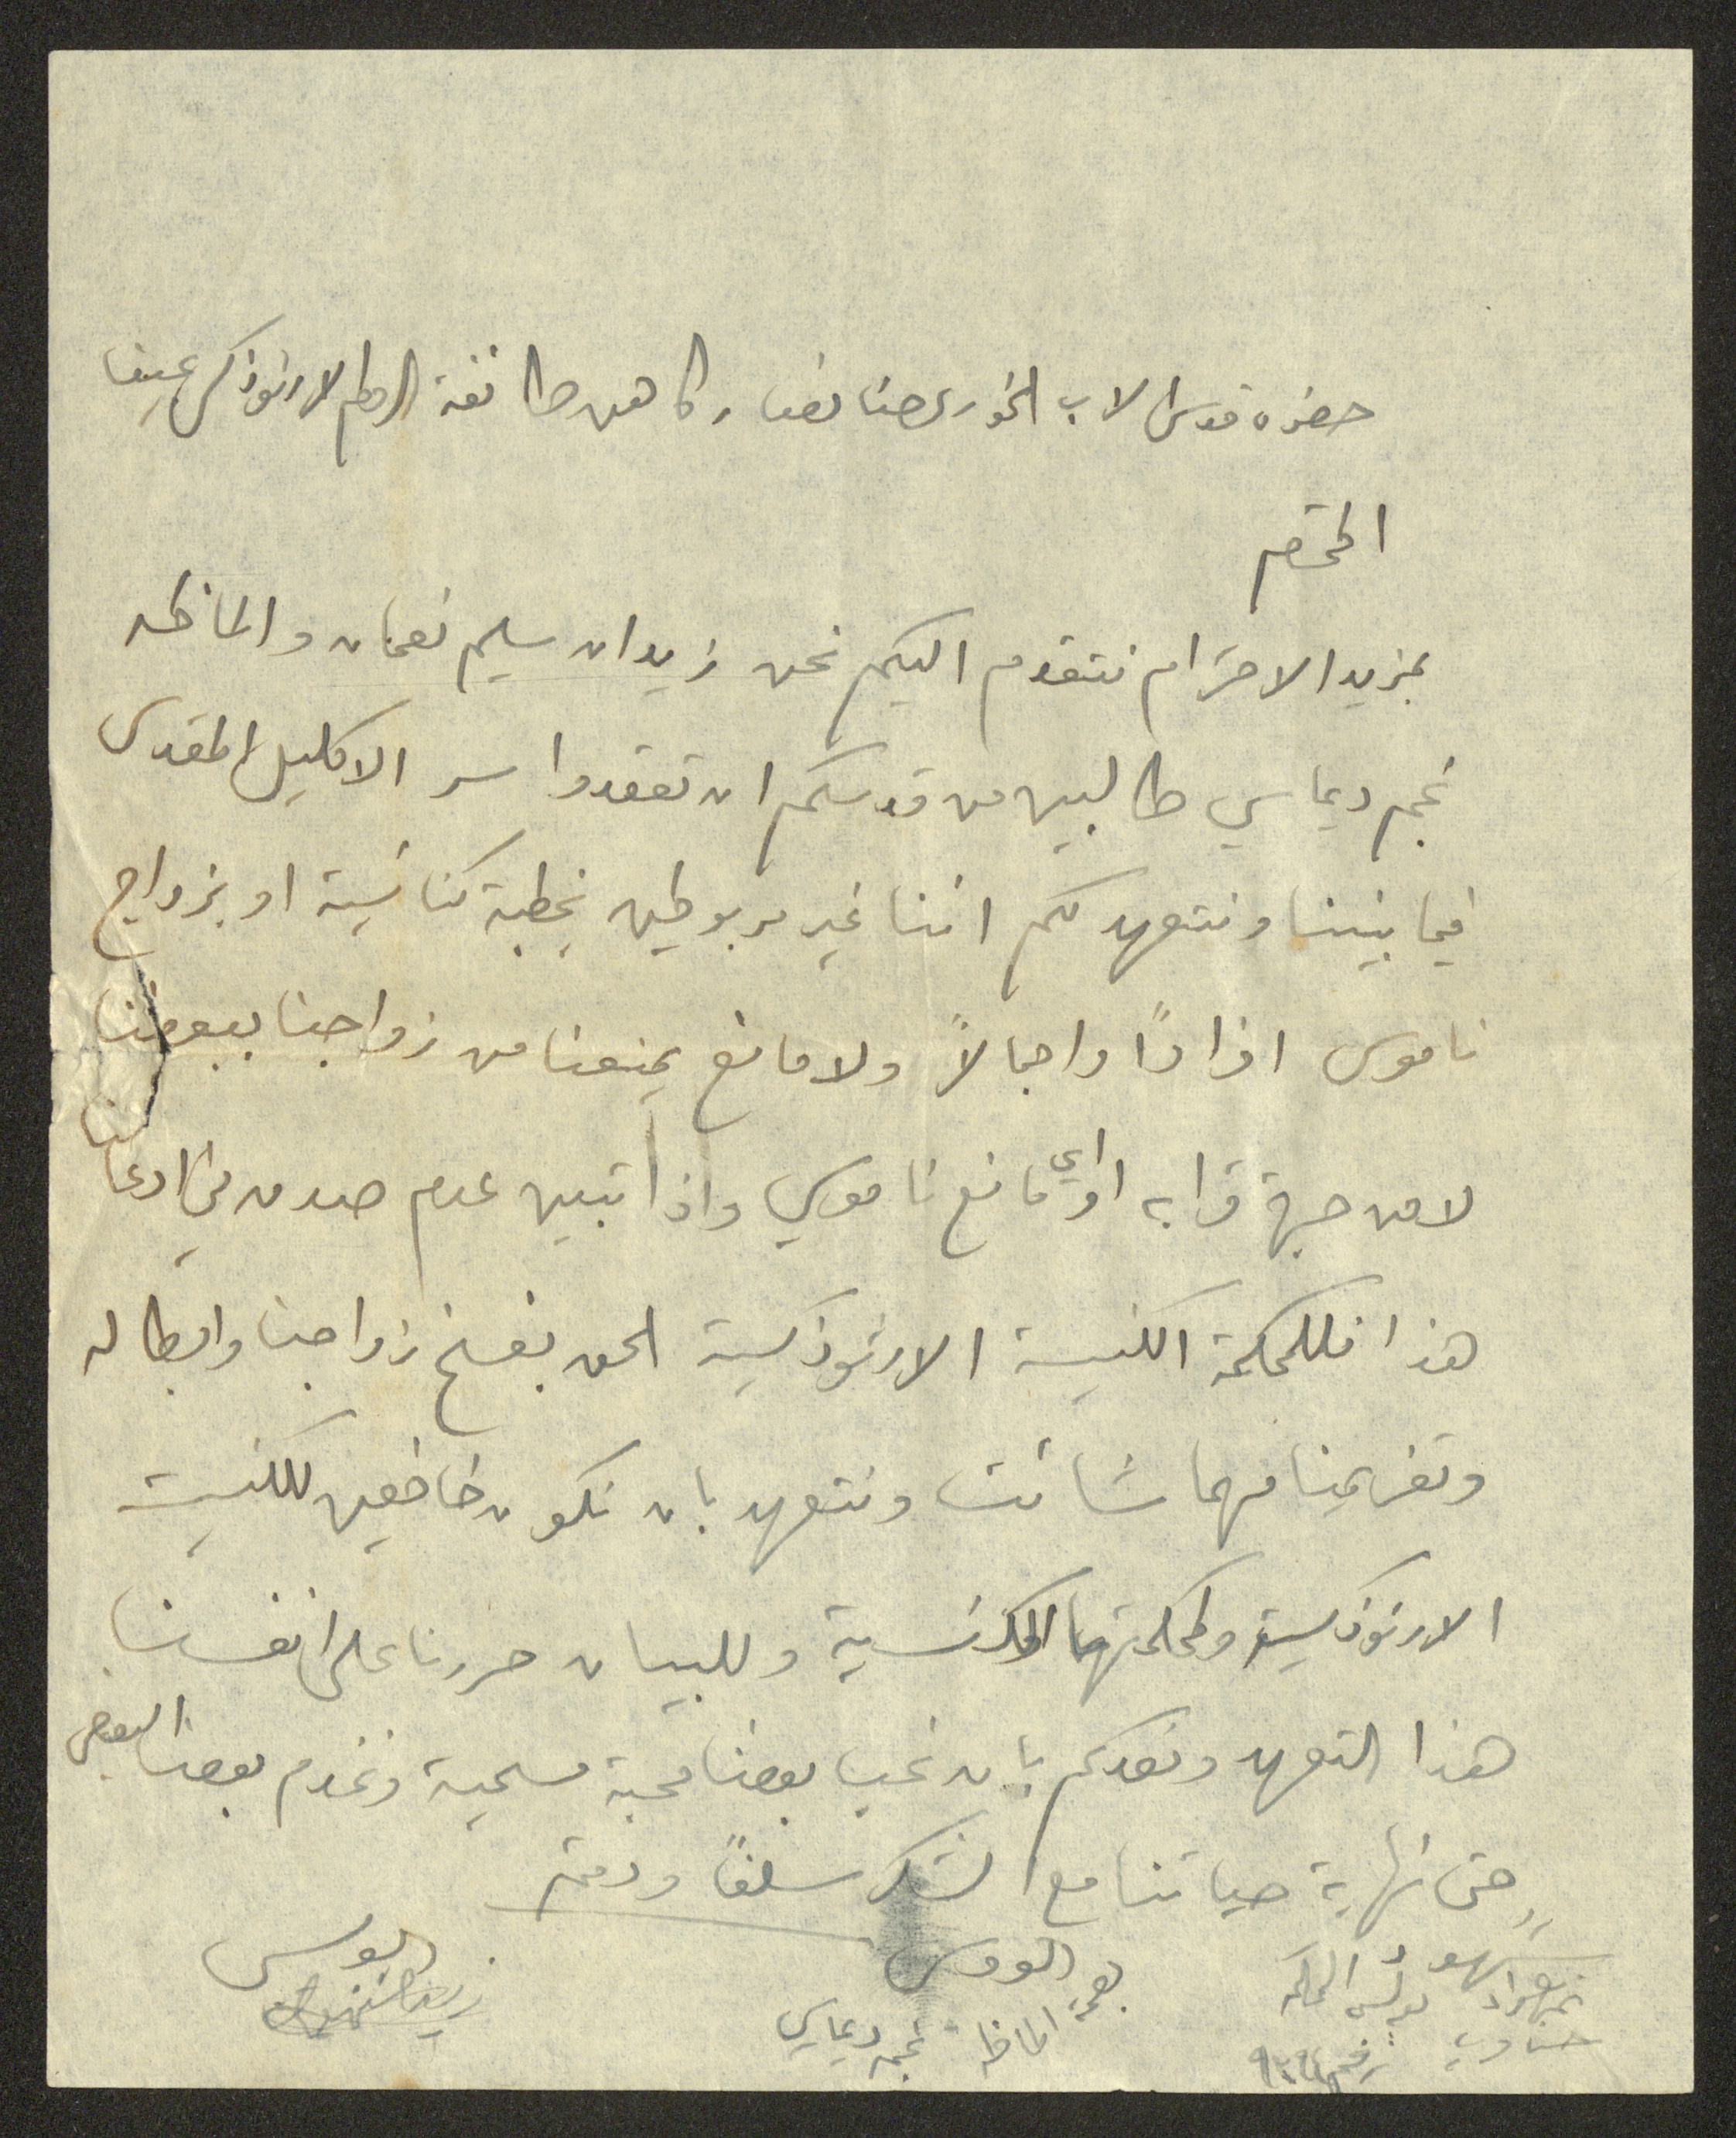 حضرة قدس الاب الخوري حنا نصار كاهن طائفة الروم الارثوذكس بحيفا
المحترم
بمزيد الاحترام نتقدم اليكم نحن زيدان سليم نعمان والماظه
نجم ديماسي طالبين من قدسكم ان تعقدوا سر الاكليل المقدس
فيما بيننا ونتعهد لكم اننا غير مربوطين بخطبة كنائسية او بزواج
ناموسي افراداً واجمالاً ولا مانع يمنعنا من زواجنا ببعضنا
لا من جهة قرابه او اي مانع ناموسي واذا تبين عدم صدق في ادعائنا
هذا فللمحكمة الكنيسة الارثوذكسية الحق بفسخ زواجنا وابطاله
وتغريمنا مهما شائت ونتعهد بان نكون خاضعين للكنيسة
الارثوذكسية ولمحكمتها الاكرنسية وللبيان حررنا على انفسنا
هذا التعهد ونعدكم بان نحب بعضنا محبة مسيحية ونخدم بعضنا البعض
حتى نهاية حياتنا مع الشكر سلفاً ودمتم
شهود
بصمة العروس
الماظه نجم ديماسي
العريس
زيدان